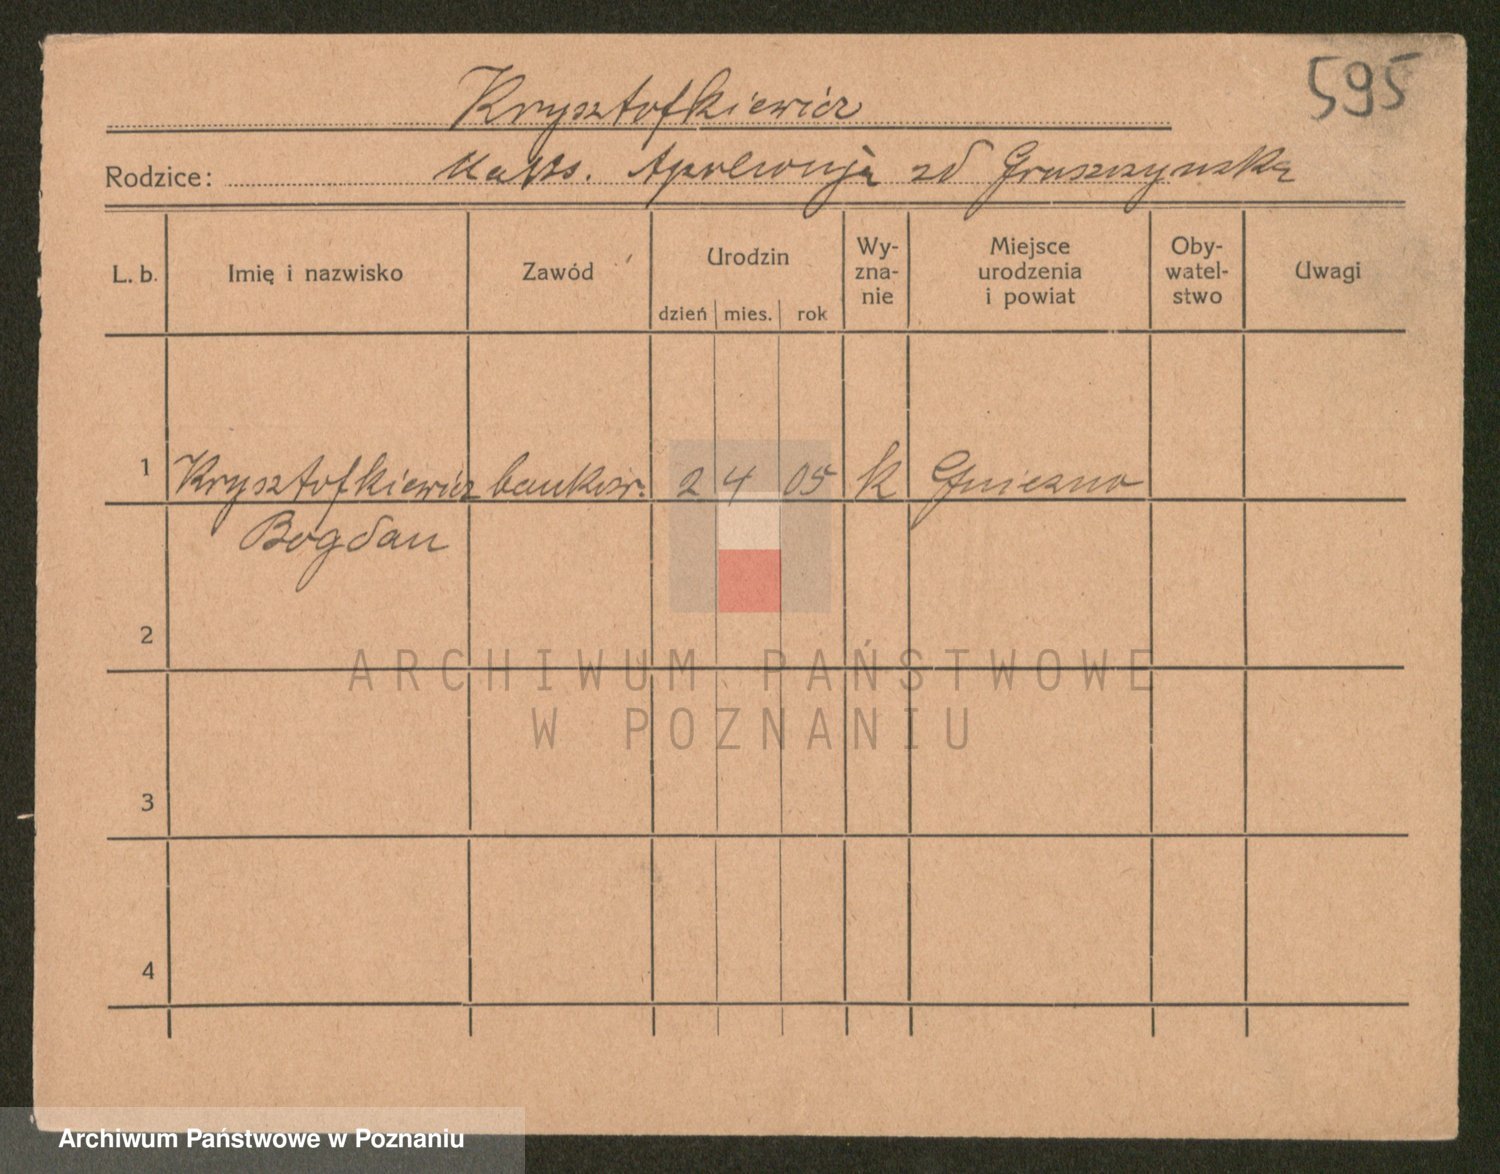 595
Krysztofkiewicz
Rodzice: Maks. Apolonja zd Gruszczynska
L. b. Imię i nazwisko Zawód Urodzin dzień mies. rok Wy-
zna-
nie Miejsce
urodzenia
i powiat Oby-
watel-
stwo Uwagi
1 Krysztofkiewicz bankow. 2 4 05 k Gniezno
Bogdan
2
3
4
ARCHIWUM PAŃSTWOWE
W POZNANIU
Archiwum Państwowe w Poznaniu